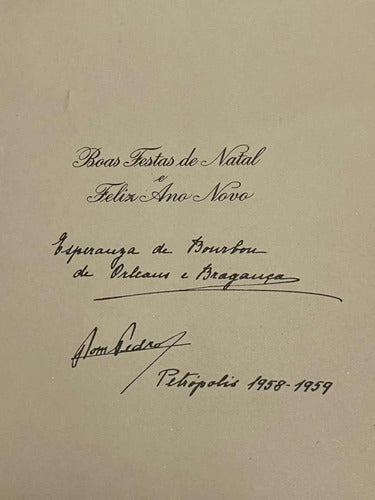 Boas Festas de Natal
e
Feliz Ano Novo
Esperanza de Bourbon
de Orleans e Bragança
Dom Pedro
Petrópolis 1958-1959